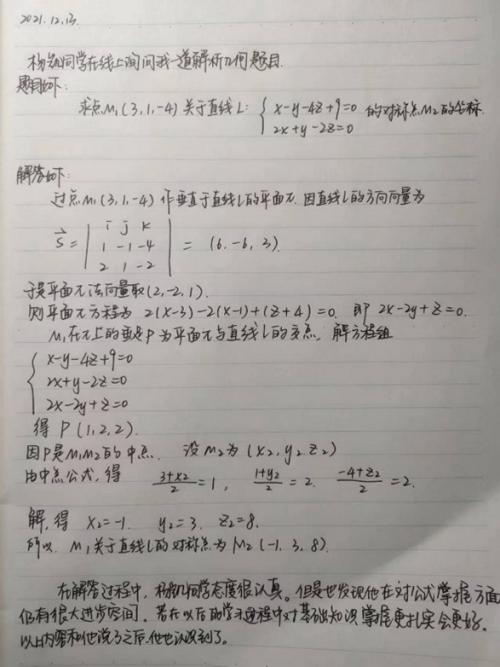 2021.12.13.
杨凯同学在线上询问我一道解析几何题目.
题目如下:
求点M₁(3,1,-4)关于直线L: { x-y-4z+9=0 的对称点M₂的坐标.
2x+y-2z=0
解答如下:
过点M₁(3,1,-4)作垂直于直线L的平面π. 因直线L的方向向量为
i j k
S⃗ = | 1 -1 -4 | = (6,-6,3).
2 1 -2
于是平面π法向量取(2,-2,1).
则平面π方程为 2(x-3)-2(x-1)+(z+4)=0. 即 2x-2y+z=0.
M₁在π上的垂足P为平面π与直线L的交点. 解方程组
{ x-y-4z+9=0
2x+y-2z=0
2x-2y+z=0
得 P(1,2,2).
因P是M₁M₂的中点. 设M₂为(x₂,y₂,z₂)
由中点公式,得 (3+x₂)/2=1, (1+y₂)/2=2. (-4+z₂)/2=2.
解,得 x₂=-1. y₂=3. z₂=8.
所以 M₁关于直线L的对称点为M₂(-1,3,8).
在解答过程中,杨凯同学态度很认真。但是也发现他在对公式掌握方面
仍有很大进步空间. 若在以后的学习过程中对基础知识掌握更扎实会更好.
以上内容和他说了之后他也认识到了。